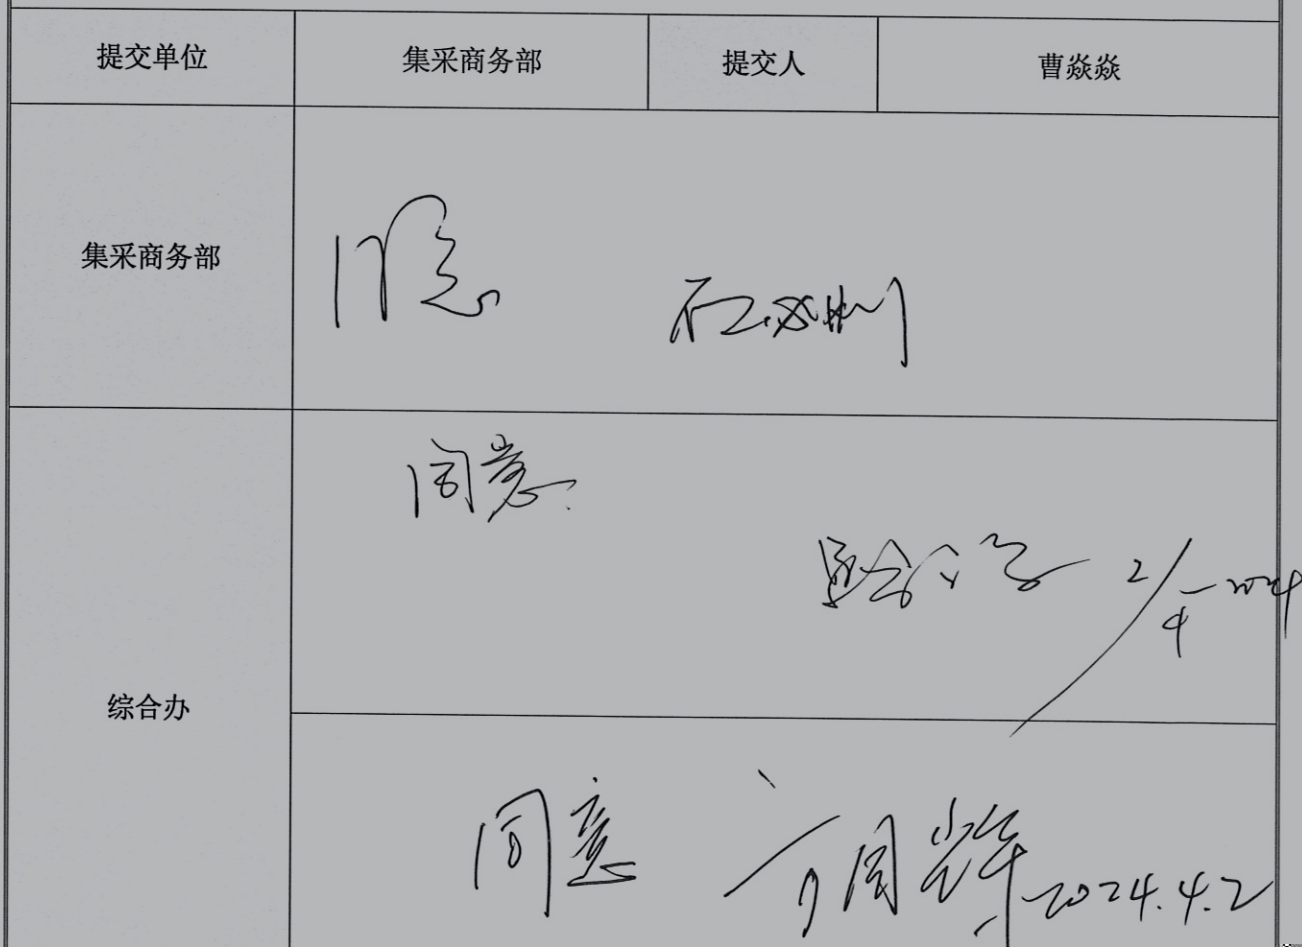 提交单位 集采商务部 提交人 曹焱焱
集采商务部
同意
同意
2/4-2024
综合办
同意
2024.4.2